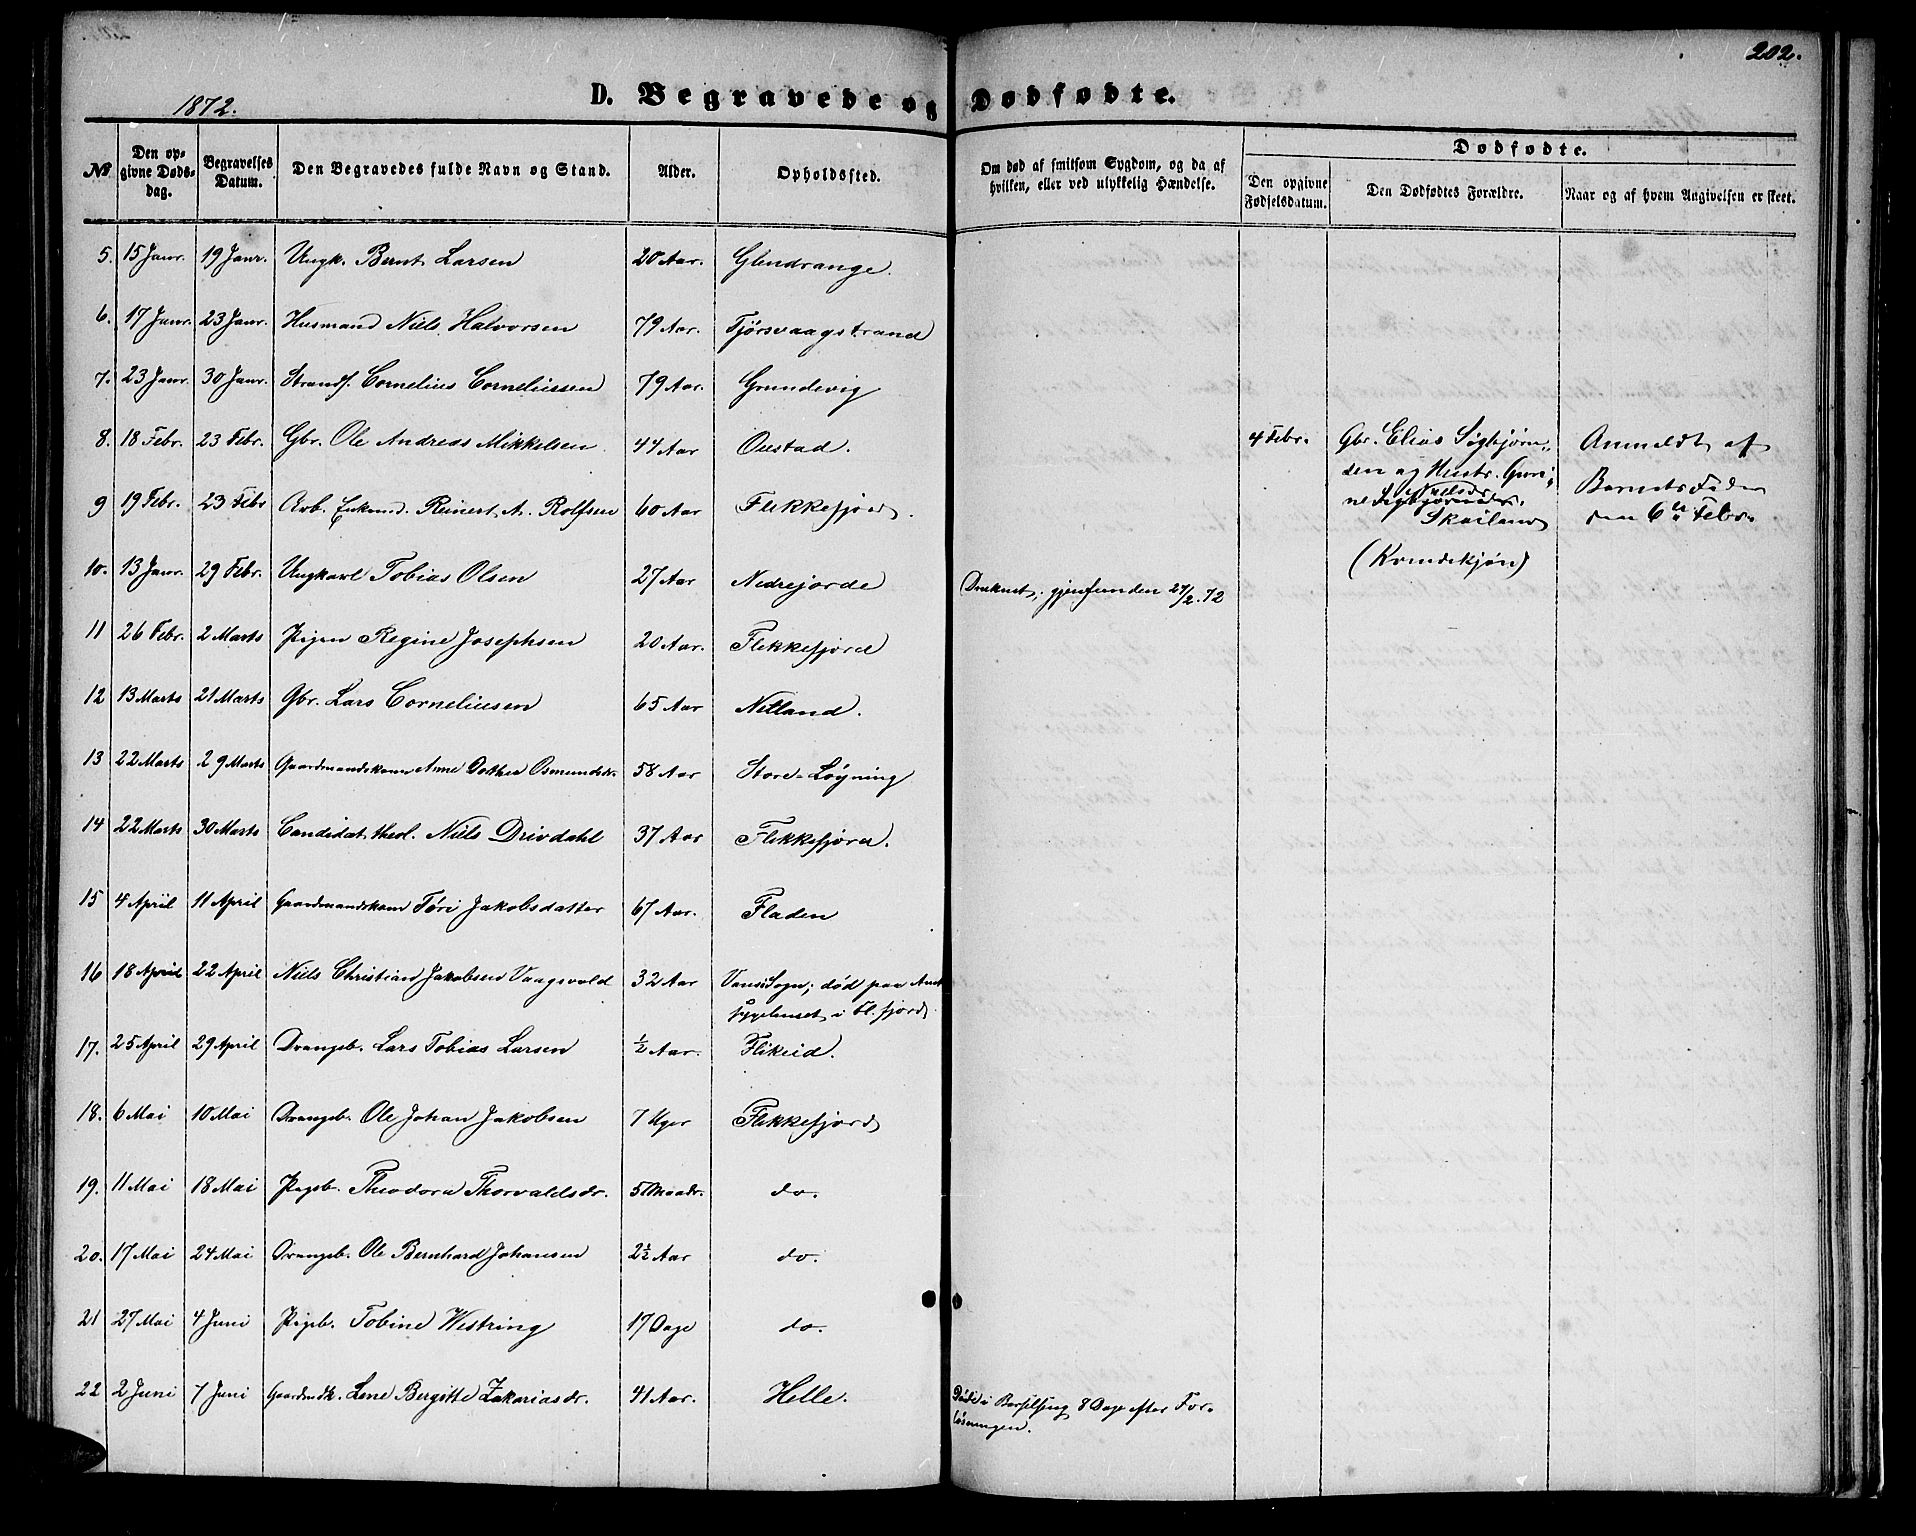 202.
1872.
D. Begravede og Dødfødte.
No
Den opgivne Dødsdag.
Begravelses Datum.
Den Begravedes fulde Navn og Stand.
Alder.
Opholdssted.
Om død af smitsom Sygdom, og da af hvilken, eller ved ulykkelig Hændelse.
Dødfødte.
Den opgivne Fødselsdatum.
Den Dødfødtes Forældre.
Naar og af hvem Angivelsen er skeet.
5. 15 Janr. 19 Janr. Ungk. Bernt Larsen 20 Aar. Glendrange.
6. 17 Janr. 23 Janr. Husmand Niels Halvorsen 79 Aar. Tjørsvaagstrand
7. 23 Janr. 30 Janr. Strands. Cornelius Corneliussen 79 Aar. Grundevig
8. 18 Febr. 23 Febr. Gbr. Ole Andreas Mikkelsen 44 Aar Ouestad.
4 Febr. Gbr. Elias Sigbjørn-
sen og Hustr. Guri-
ne Nielsdr. Sigbjørnsdr.
Skailand
(Kvindekjøn)
Anmeldt af
Barnets Fader
den 6te Febr.
9 19 Febr. 23 Febr Arb. Enkemd. Reinert A. Rolfsen 60 Aar Flekkefjord.
10. 13 Janr. 29 Febr. Ungkarl Tobias Olsen 27 Aar Nedrejorde Druknet; gjenfunden 27/2.72
11 26 Febr. 2 Marts Pigen Regine Josephsen 20 Aar. Flekkefjord
12 13 Marts 21 Marts Gbr. Lars Corneliusen 65 Aar Netland.
13 22 Marts 29 Marts Gaardmandskone Anne Dorthea Osmundsdr. 58 Aar Store-Løyning
14 22 Marts 30 Marts Candidat theol. Niels Drivdahl 37 Aar Flekkefjord.
15 4 April 11 April Gaardmandskone Tøri Jakobsdatter 67 Aar. Fladen
16 18 April 22 April Niels Christian Jakobsen Vaagsvold 32 Aar Vanse Sogn; død paa Amt
sygehuset i Fl.fjord.
17. 25 April 29 April Drengeb. Lars Tobias Larsen ½ Aar. Flikeid.
18. 6 Mai 10 Mai Drengeb. Ole Johan Jakobsen 7 Uger Flekkefjord
19. 11 Mai 18 Mai Pigeb. Theodora Thorvaldsdr. 5 Maadr. do.
20. 17 Mai 24 Mai Drengeb. Ole Bernhard Johansen 2½ Aar do.
21 27 Mai 4 Juni Pigeb. Tobine Westring 17 Dage do.
22 2 Juni 7 Juni Gaardmdk. Lene Bergitte Zakariasdr. 41 Aar. Helle. Døde i Barselseng 8 Dage efter For-
løsningen.